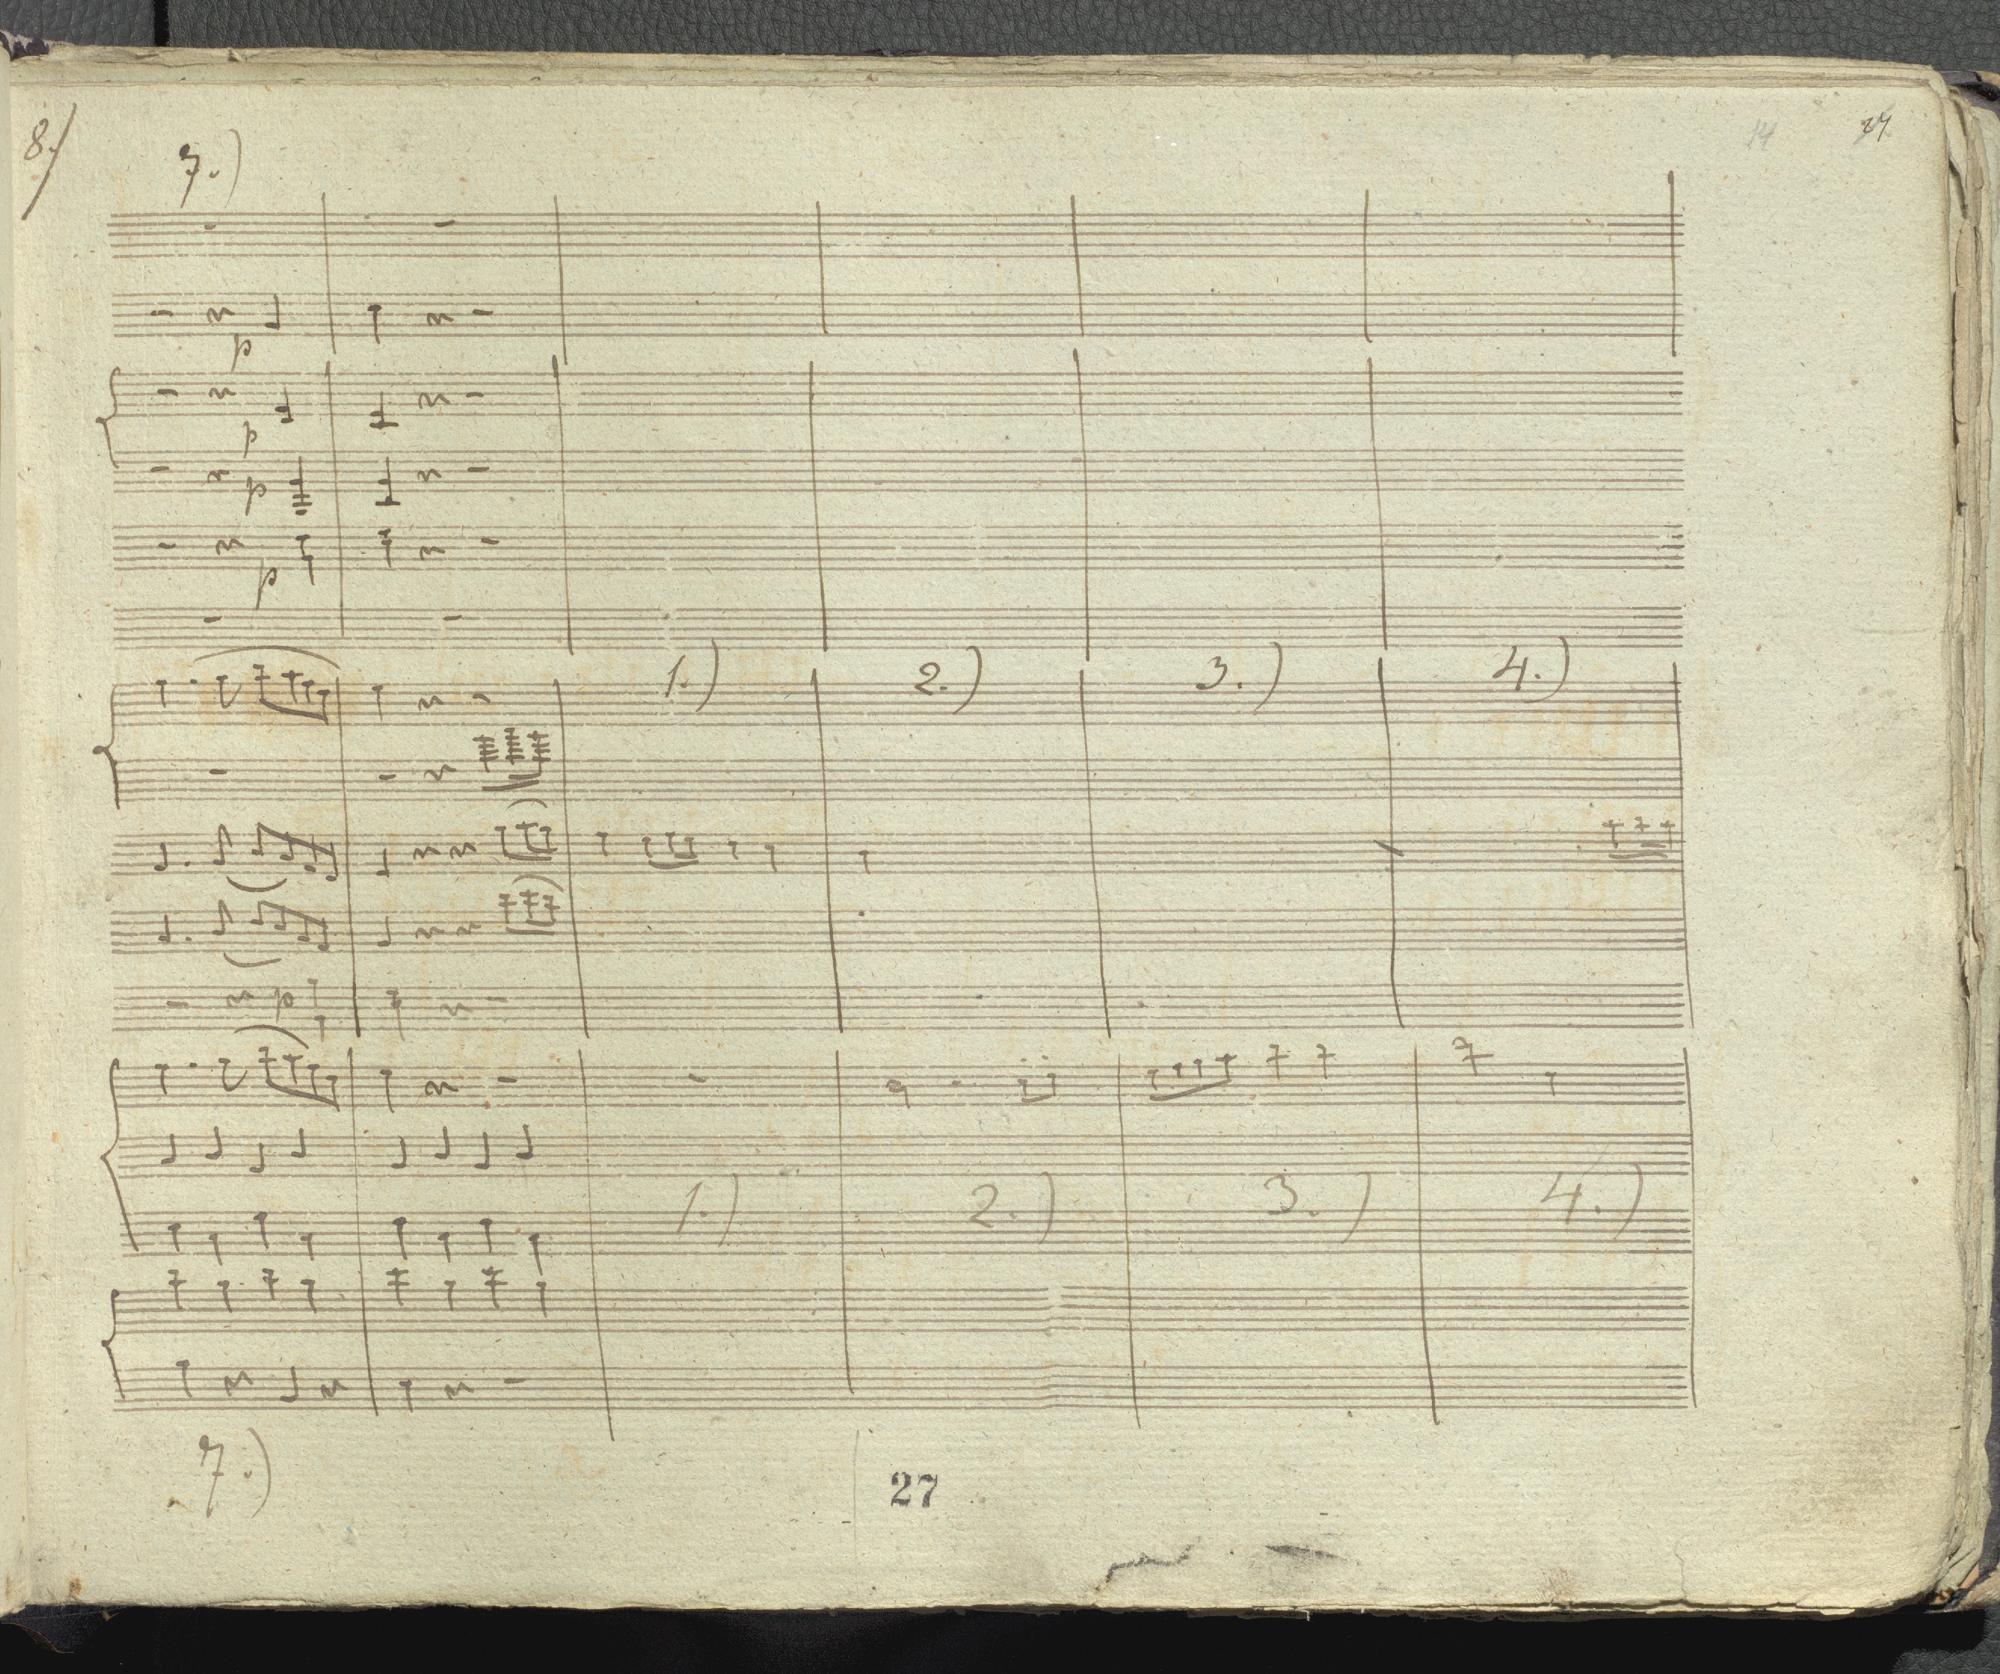 8./
7.)
14
27
p
p
p
p
1.) 2.) 3.) 4.)
p
1.) 2.) 3.) 4.)
7.)
27